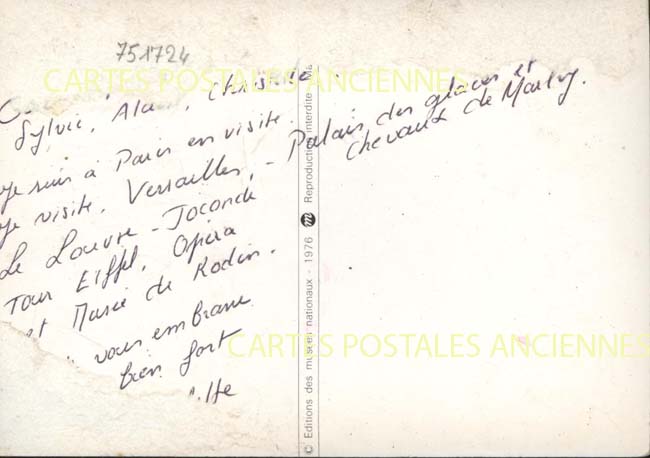 751724
CARTES POSTALES ANCIENNES
Sylvie, Alain, Christine
Je suis à Paris en visite.
Je visite. Versailles, - Palais des glaces et
chevaux de Marly.
Le Louvre - Joconde
Tour Eiffel. Opéra
et Musée de Rodin.
vous embrasse
bien fort
CARTES POSTALES ANCIENNES
© Editions des musées nationaux - 1976 m Reproduction interdite